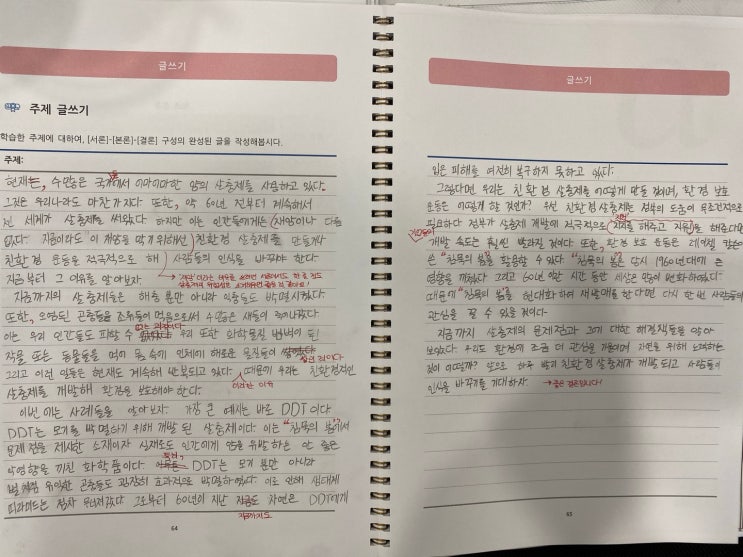 글쓰기
주제 글쓰기
학습한 주제에 대하여, [서론]-[본론]-[결론] 구성의 완성된 글을 작성해봅시다.
주제:
현재는, 수많은 국가들에서 어마어마한 양의 살충제를 사용하고 있다.
그것은 우리나라도 마찬가지다. 또한, 약 60년 전부터 계속해서
전 세계가 살충제를 써왔다. 하지만 이는 인간들에게는 재앙이나 다름
없다. 지금이라도 이 재앙을 막기 위해선 친환경 살충제를 만들거나
친환경 운동을 적극적으로 해 사람들의 인식을 바꾸어야 한다.
지금부터 그 이유를 알아보자.
지금까지의 살충제들은 해충 뿐만 아니라 익충들도 박멸시켰다.
또한, 오염된 곤충들을 조류들이 먹음으로써 수많은 새들이 죽어나갔다.
이는 우리 인간들도 피할 수 없는 과정이다. 우리 또한 화학물질 범벅이 된
작물 또는 동물들을 먹어 몸 속이 인체에 해로운 물질들이 쌓인 것이다.
그리고 이런 일들은 현재도 계속해 반복되고 있다. 이러한 이유 때문에 우리는 친환경적인
살충제를 개발해 환경을 보호해야 한다.
이번에는 사례들을 알아보자. 가장 큰 예시는 바로 DDT이다.
DDT는 모기를 박멸하기 위해 개발 된 살충제이다. 이는 "침묵의 봄"에서
문제점을 제시한 소재이자 실제로도 인간에게 암을 유발하는 안 좋은
악영향을 끼친 화학품이다. DDT는 모기 뿐만 아니라
유익한 곤충들도 굉장히 효과적으로 박멸하였다. 이로 인해 생태계
피라미드는 점차 무너져갔다. 그로부터 60년이 지난 지금까지도 자연은 DDT에게
64
글쓰기
입은 피해를 여전히 복구하지 못하고 있다.
그렇다면 우리는 친환경 살충제를 어떻게 만들 것이며, 환경 보호
운동은 어떻게 할 것인가? 우선 친환경 살충제는 정부의 도움이 무조건적으로
필요하다. 정부가 살충제 개발에 적극적으로 지원해준다면
개발 속도는 훨씬 빨라질 것이다. 또한, 환경 보호 운동은 레이첼 카슨이
쓴 "침묵의 봄"을 활용할 수 있다. "침묵의 봄"은 당시 1960년대에 큰
영향을 끼쳤다. 그리고 60년이란 시간 동안 세상은 많이 변화하였다.
때문에 "침묵의 봄"을 현대화하여 재발매를 한다면 다시 한 번 사람들의
관심을 끌 수 있을 것이다.
지금까지 살충제의 문제점과 그에 대한 해결책들을 알아
보았다. 우리도 환경에 조금 더 관심을 기울이며 자연을 위해 노력하는
것이 어떨까? 앞으로 하루 빨리 친환경 살충제가 개발되고 사람들의
인식을 바꾸기를 기대하자. → 좋은 결론입니다!
65